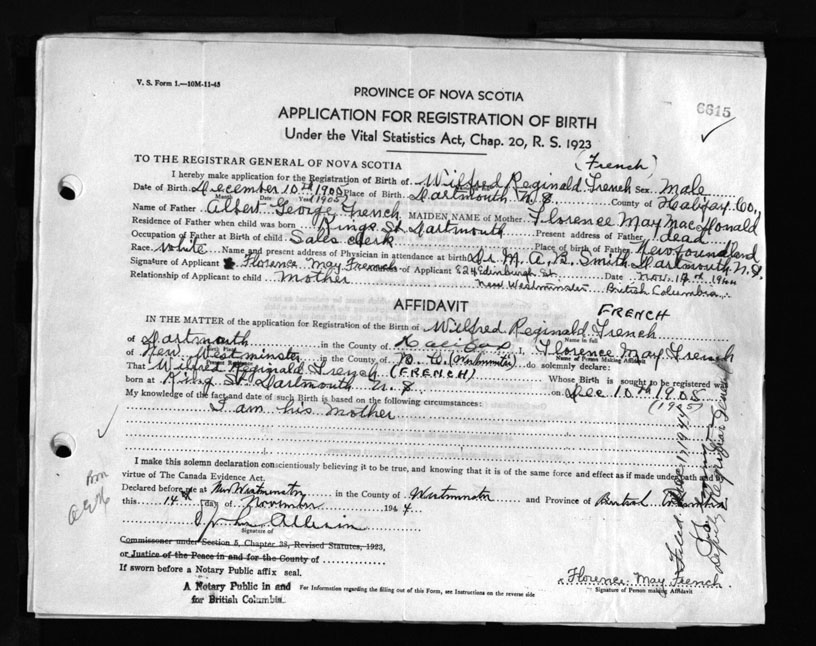 V. S. Form 1.—10M-11-43
PROVINCE OF NOVA SCOTIA
6615
APPLICATION FOR REGISTRATION OF BIRTH
Under the Vital Statistics Act, Chap. 20, R. S. 1923
TO THE REGISTRAR GENERAL OF NOVA SCOTIA
(French)
I hereby make application for the Registration of Birth of Wilfred Reginald French Sex Male
Date of Birth December 10th 1905 Place of Birth Dartmouth N.S. County of Halifax Co.
Month Date Year (1905)
Name of Father Albert George French MAIDEN NAME of Mother Florence May MacDonald
Residence of Father when child was born King St. Dartmouth Present address of Father dead
Occupation of Father at Birth of child Sales clerk Place of birth of Father Newfoundland
Race white Name and present address of Physician in attendance at birth Dr. M. A. B. Smith Dartmouth N.S.
Signature of Applicant Florence May French of Applicant 824 Edinburgh St. Date Nov. 14th 1944
Relationship of Applicant to child mother New Westminster British Columbia
AFFIDAVIT
FRENCH
IN THE MATTER of the application for Registration of the Birth of Wilfred Reginald French
Name in full
of Dartmouth in the County of Halifax I, Florence May French
Name of Person Making Affidavit
of New Westminster in the County of B. C. (Westminster) do solemnly declare:
That Wilfred Reginald French (FRENCH) Whose Birth is sought to be registered was
born at King St. Dartmouth N.S. on Dec 10th 1905
(1905)
My knowledge of the fact and date of such Birth is based on the following circumstances:
I am his mother
I make this solemn declaration conscientiously believing it to be true, and knowing that it is of the same force and effect as if made under oath and by
virtue of The Canada Evidence Act.
Declared before me at New Westminster in the County of Westminster and Province of British Columbia
this 14 day of November 1944
Signature of
Commissioner under Section 5, Chapter 38, Revised Statutes, 1923,
or Justice of the Peace in and for the County of
If sworn before a Notary Public affix seal.
Florence May French
Signature of Person making Affidavit
A Notary Public in and
for British Columbia.
For Information regarding the filling out of this Form, see Instructions on the reverse side
Deputy Registrar General